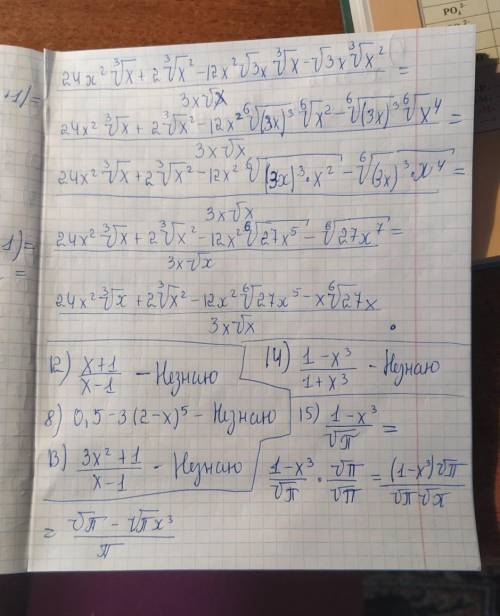 24x² ∛x + 2 ∛x² - 12x² √3x ∛x - √3x ∛x² =
3x√x
24x² ∛x + 2 ∛x² - 12x² ⁶√(3x)³ ⁶√x² - ⁶√(3x)³ ⁶√x⁴ =
3x√x
24x² ∛x + 2 ∛x² - 12x² ⁶√(3x)³·x² - ⁶√(3x)³·x⁴ =
3x√x
24x² ∛x + 2 ∛x² - 12x² ⁶√27x⁵ - ⁶√27x⁷ =
3x√x
24x² ∛x + 2 ∛x² - 12x² ⁶√27x⁵ - x ⁶√27x
3x√x
12) (x+1)/(x-1) - Незнаю
14) (1-x³)/(1+x³) - Незнаю
8) 0,5-3(2-x)⁵ - Незнаю
15) (1-x³)/√π =
13) (3x²+1)/(x-1) - Незнаю
(1-x³)/√π · √π/√π = (1-x³)√π/(√π√x)
= (√π - √πx³)/π
PO₄